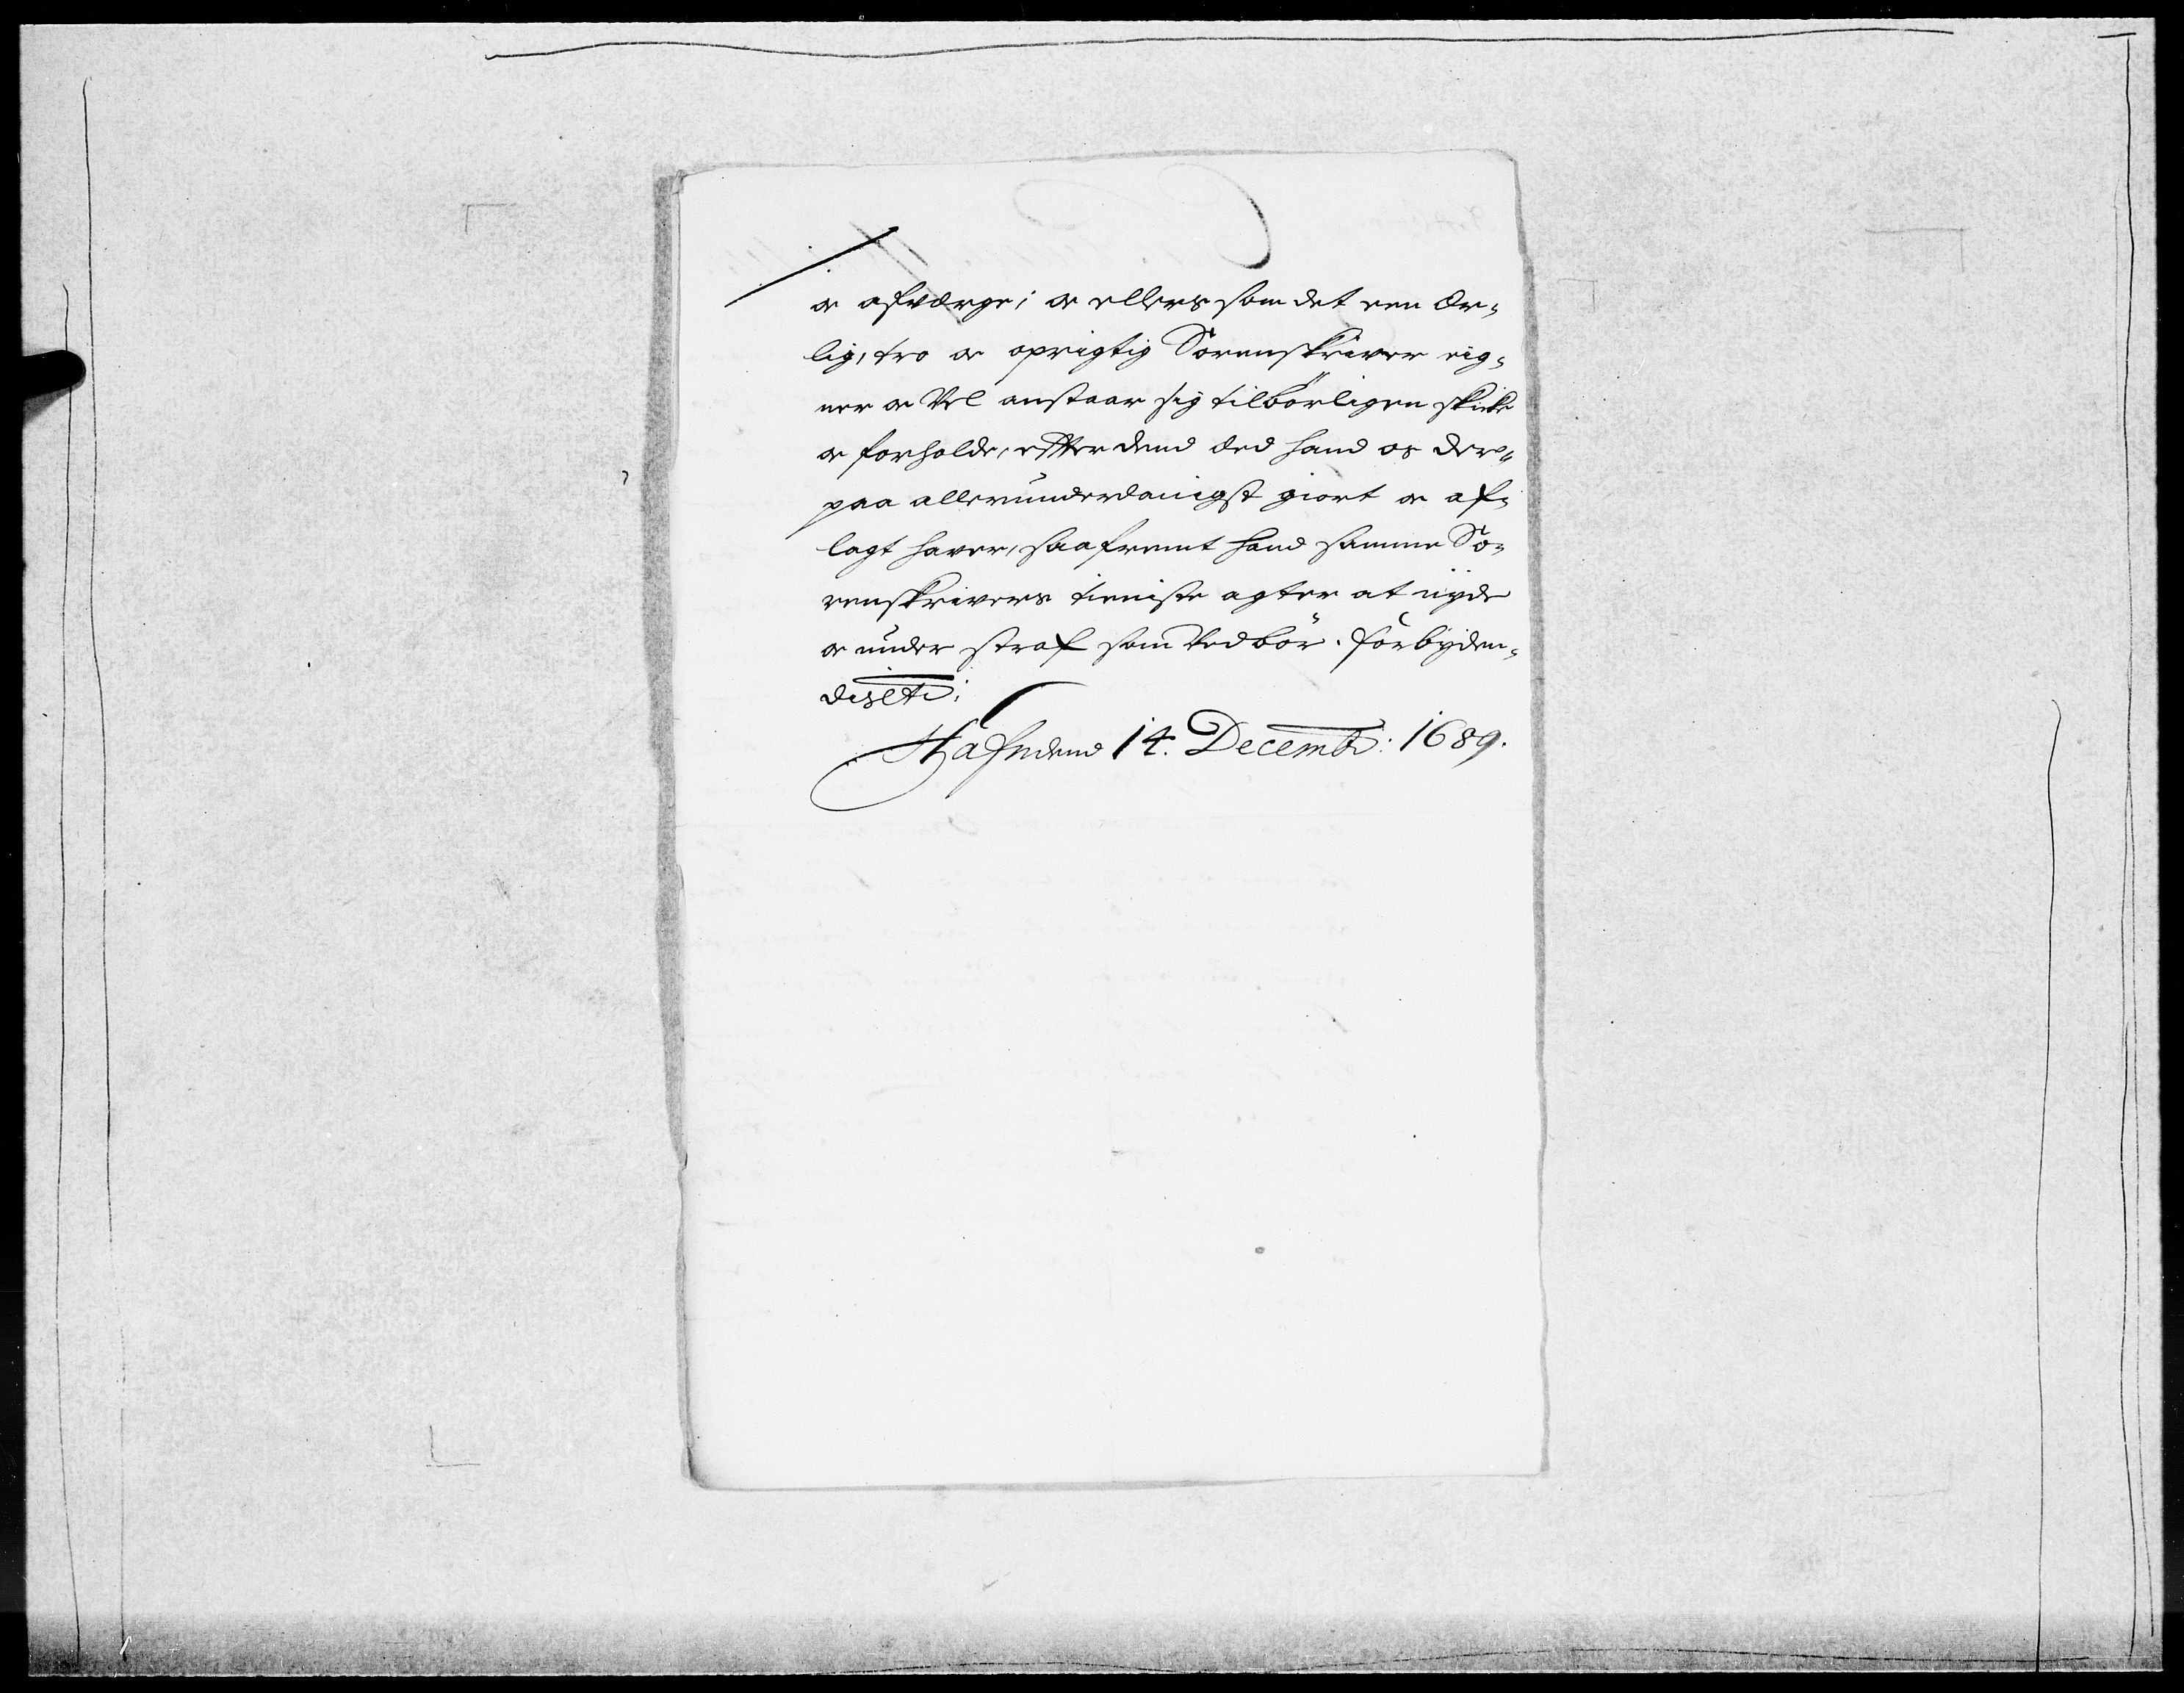 og afværge; og ellers som det een Ær-
lig, tro og oprigtig Sorenskriver eig-
ner og Vel anstaar sig tilbørligen skicke
og forholde, effter dend Æed hand os der-
paa allerunderdanigst giort og af-
lagt hafver, saafremt hand samme So-
renskrivers tieniste agter at nyde
og under straf som Vedbør. Forbyden-
dis etc:
Hafn dend 14. Decembr: 1689.